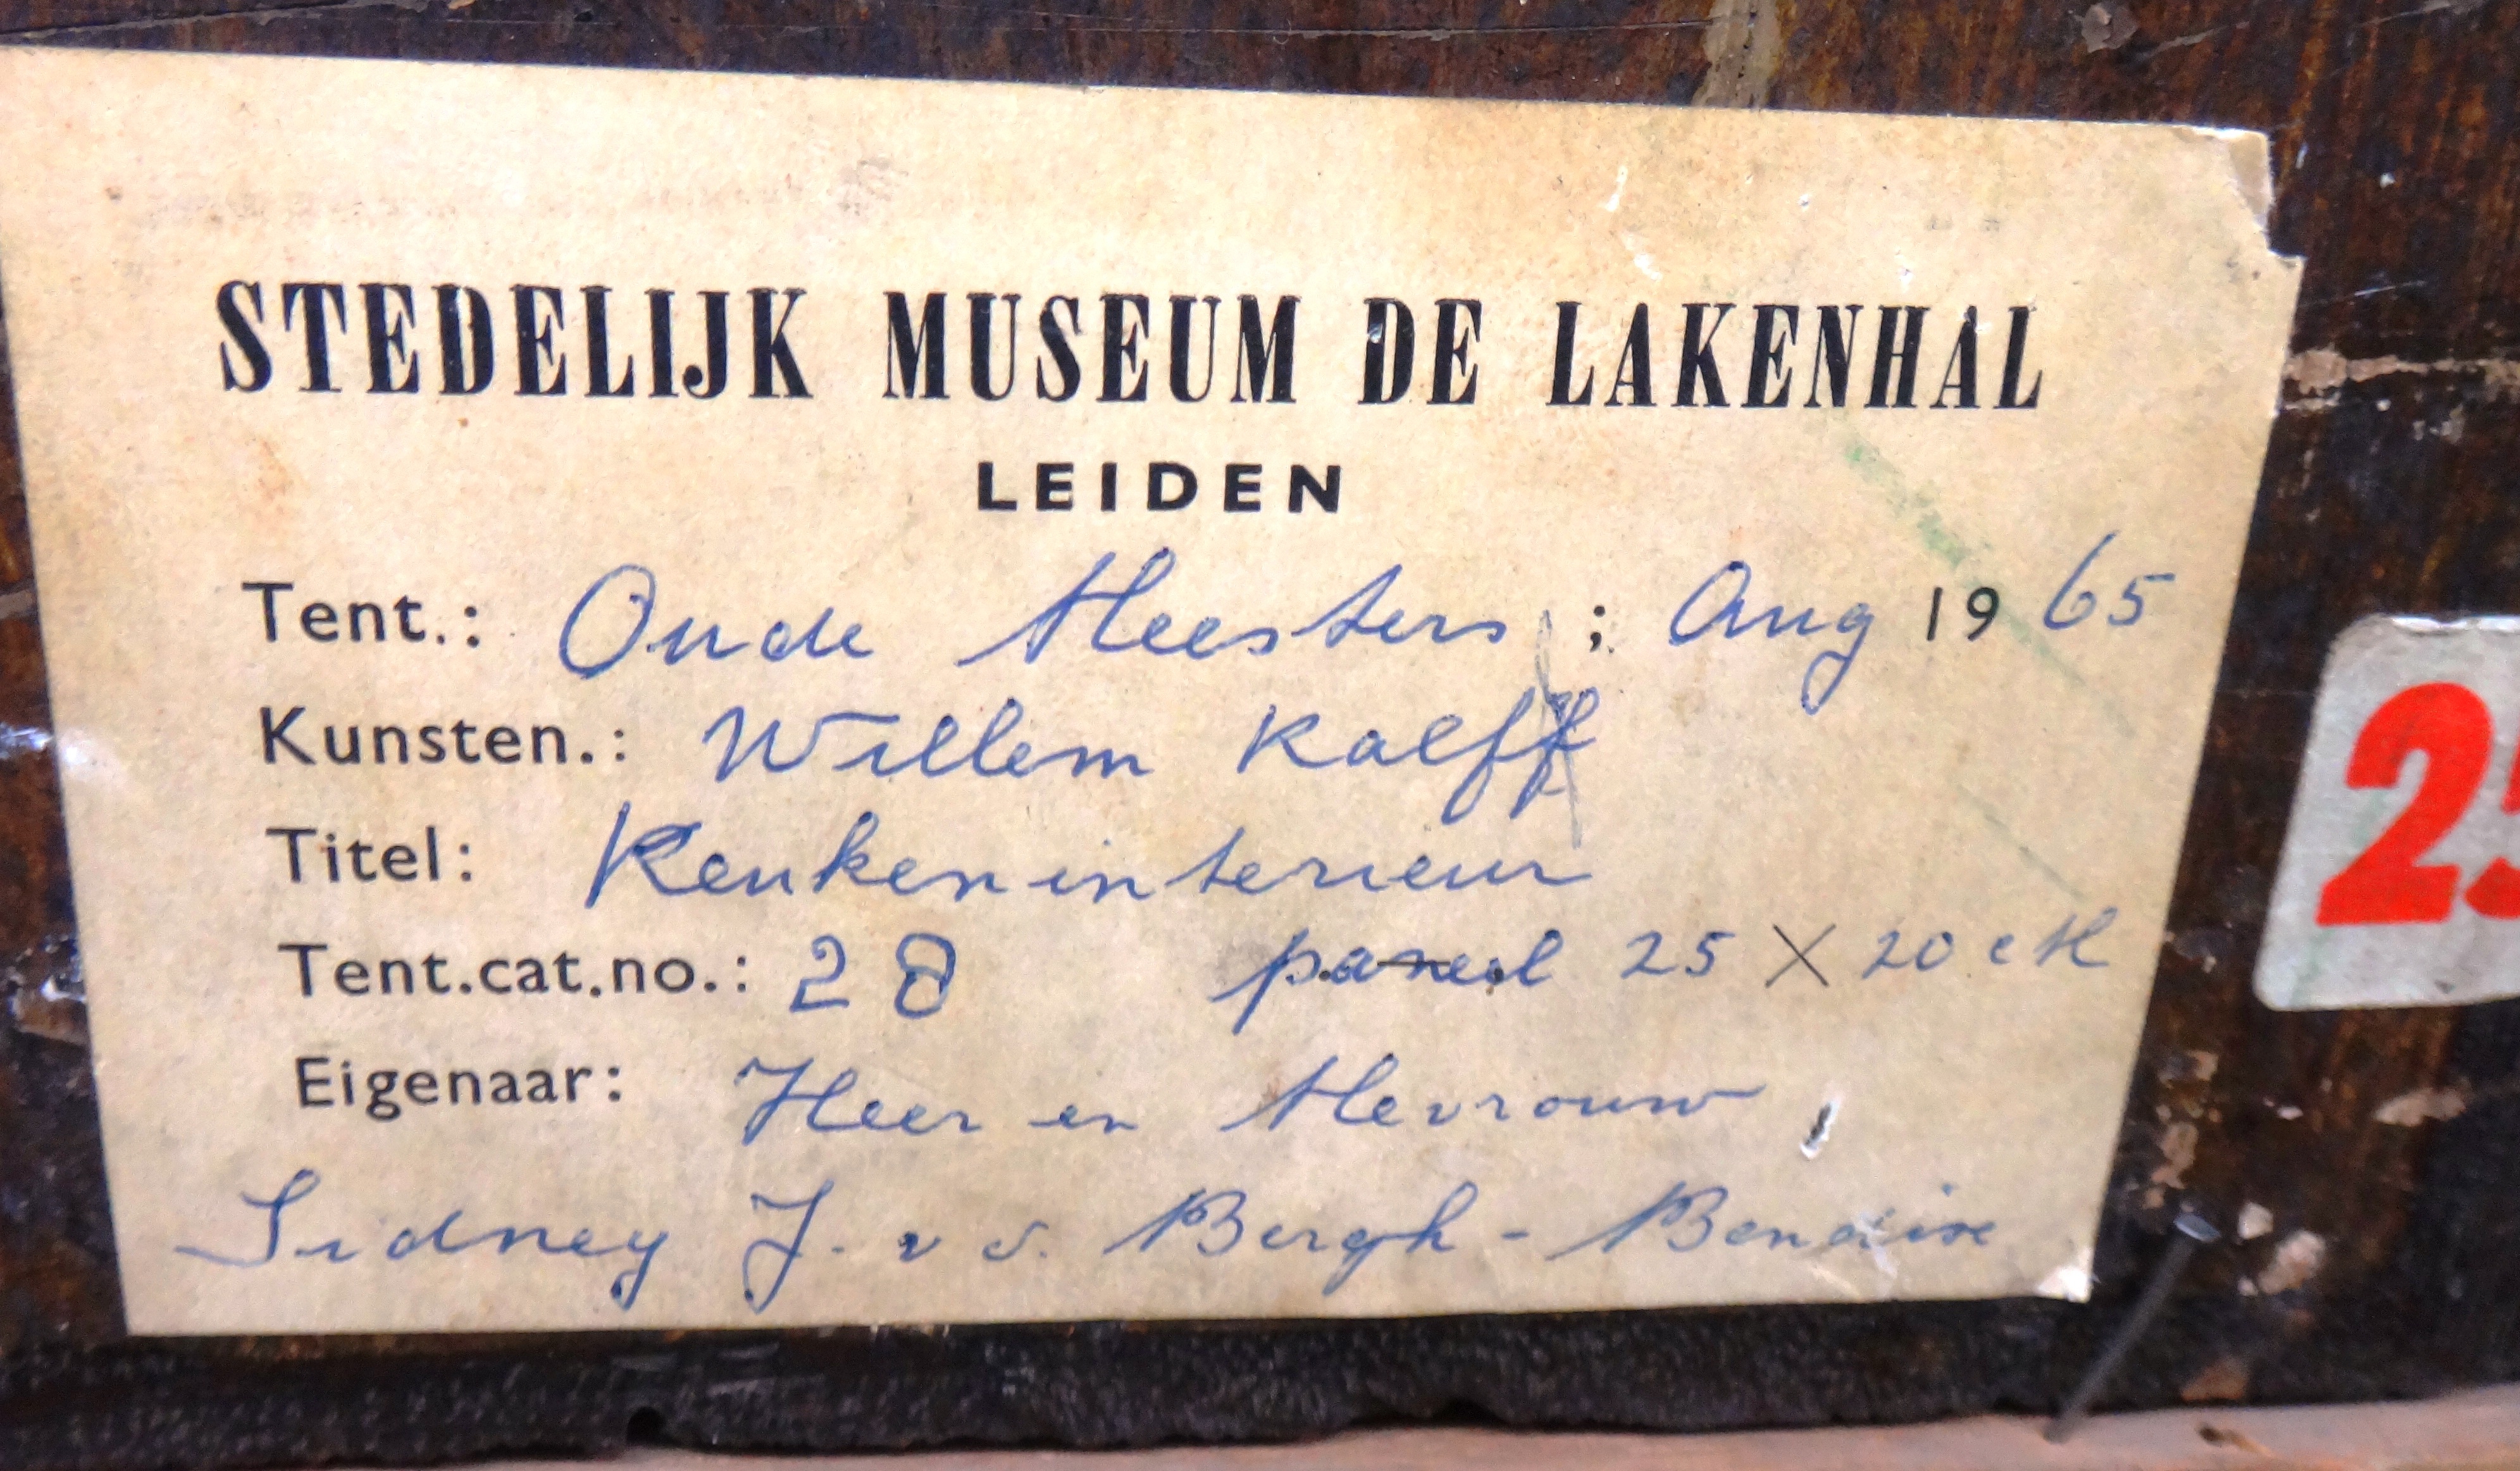 STEDELIJK MUSEUM DE LAKENHAL
LEIDEN
Tent.: Oude Meesters ; Aug 1965
Kunsten.: Willem Kalff
Titel: Keukeninterieur
Tent.cat.no.: 28 paneel 25 X 20 cM
Eigenaar: Heer en Mevrouw
Sidney J. v d. Bergh - Bendix